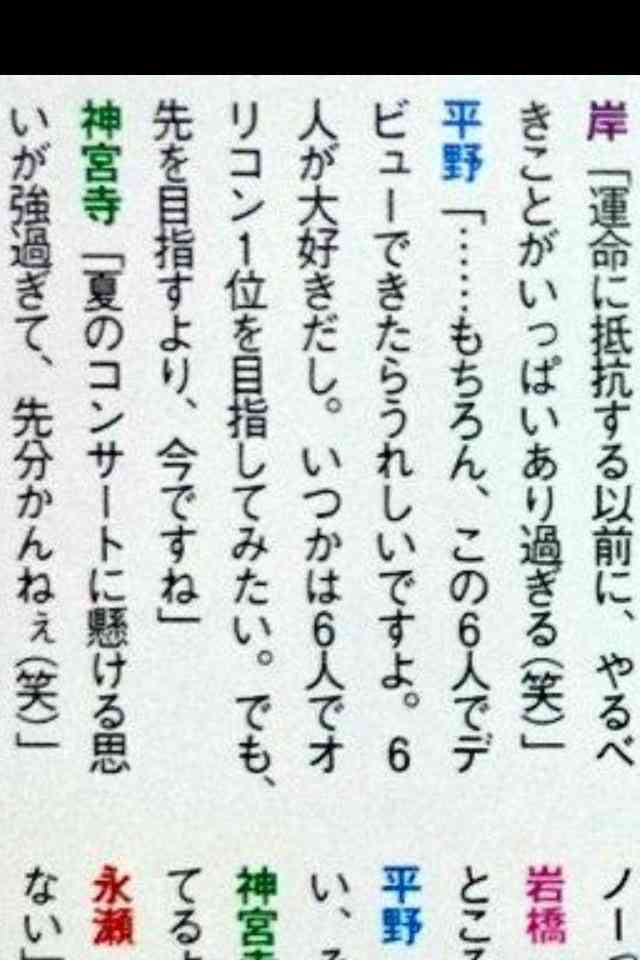 岸「運命に抵抗する以前に、やるべ
きことがいっぱいあり過ぎる(笑)」
平野「……もちろん、この6人でデ
ビューできたらうれしいですよ。6
人が大好きだし。いつかは6人でオ
リコン1位を目指してみたい。でも、
先を目指すより、今ですね」
神宮寺「夏のコンサートに懸ける思
いが強過ぎて、先分かんねぇ(笑)」
ノー
岩橋
ところ
平野
い、そ
神宮寺
てるよ
永瀬
ない」